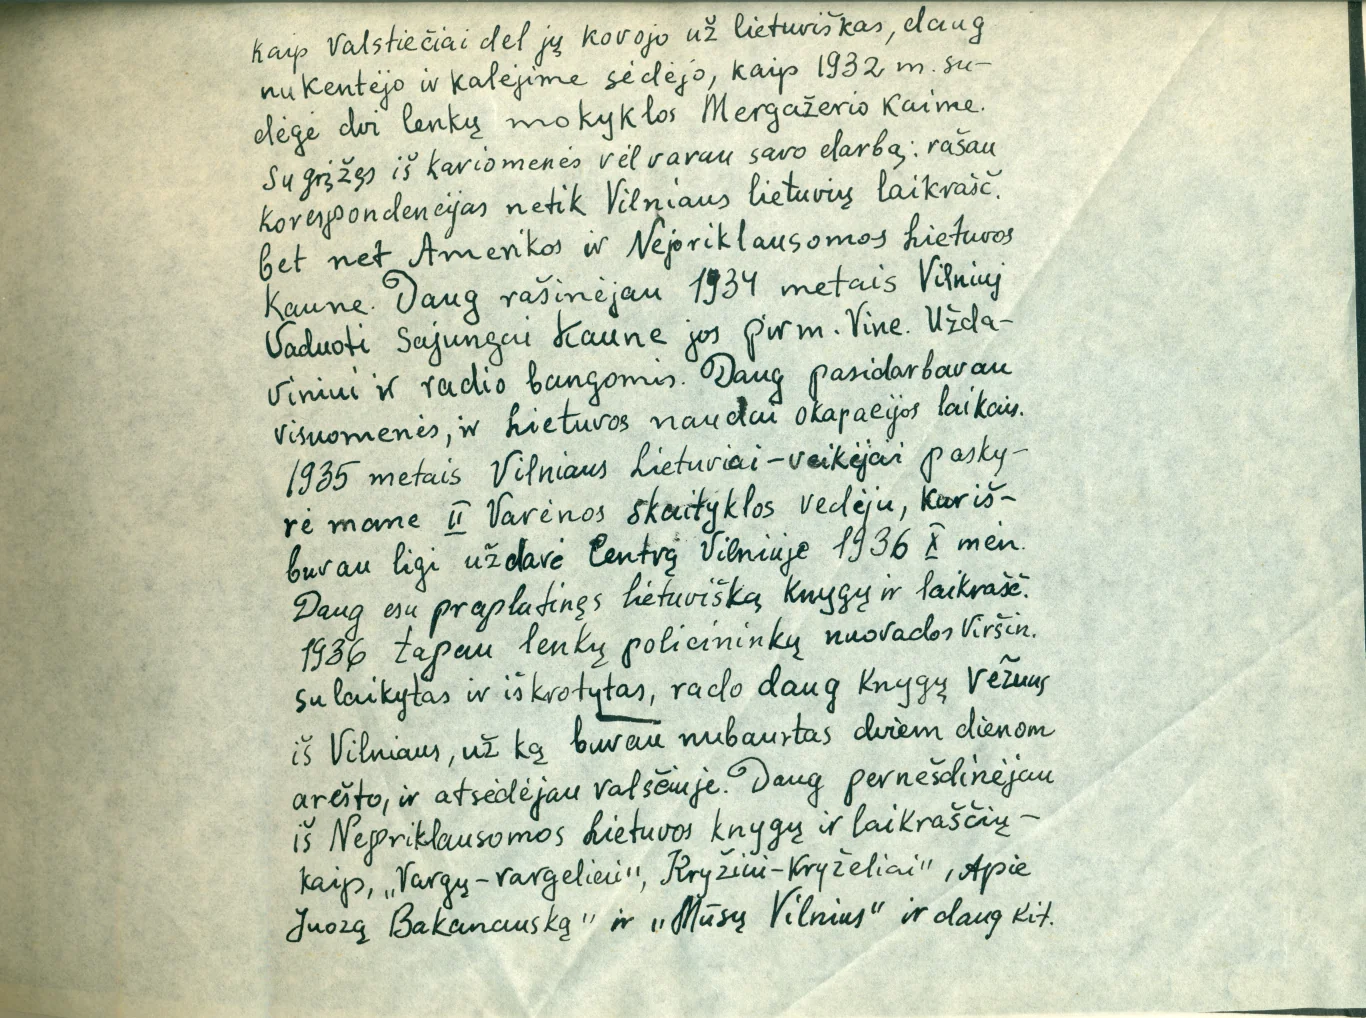 kaip valstiečiai del jų kovojo už lietuviškas, daug
nukentėjo ir kalėjime sėdėjo, kaip 1932 m. su-
dėgė dvi lenkų mokyklos Mergažerio kaime.
Sugrįžęs iš kariomenės vėl varau savo darbą: rašau
korespondencijas netik Vilniaus lietuvių laikrašč.
bet net Amerikos ir Nepriklausomos Lietuvos
Kaune. Daug rašinėjau 1934 metais Vilniuj
Vaduoti Sajungai Kaune jos pirm. Vinc. Užda-
viniui ir radio bangomis. Daug pasidarbavau
visuomenės, ir Lietuvos naudai okapacijos laikais.
1935 metais Vilniaus Lietuviai-veikėjai pasky-
rė mane II Varėnos skaityklos vedėju, kur iš-
buvau ligi uždarė Centrą Vilniuje 1936 X mėn.
Daug esu praplatinęs lietuvišką knygų ir laikrašč.
1936 tapau lenkų policininkų nuovados viršin.
sulaikytas ir iškrotytas, rado daug knygų vežuus
iš Vilniaus, už ką buvau nubaustas dviem dienom
arešto, ir atsėdėjau valsčiuje. Daug pernešdinėjau
iš Nepriklausomos Lietuvos knygų ir laikraščių-
kaip, „Vargų-vargeliai", Kryžiai-Kryželiai", „Apie
Juozą Bakanauską" ir „Mūsų Vilnius" ir daug kit.